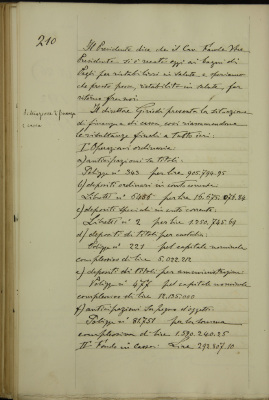 210
Il Presidente dice che il Cav. Favola Vice
Presidente si è recato oggi ai bagni di
per ristabilirsi in salute e speriamo
che presto possa, ristabilito in salute, far
ritorno fra noi.
Situazione di finanza
e cassa
Il direttore presenta la situazione
di finanza e di cassa così riassumendone
le risultanze finali a tutto ieri:
I° Operazioni ordinarie
a) anticipazioni su titoli:
Polizze n° 343 per lire 905,794.95
b) depositi ordinari in conto corrente
Libretti n° per lire
c) depositi speciali in conto corrente:
Libretti n° 2 per lire 1.250.745.69
d) depositi di titoli per custodia:
Polizze n° 221 pel capitale nominale
complessivo di lire 5.022.212
e) depositi di titoli per amministrazione
Polizze n° 477 pel capitale nominale
complessivo di lire 12.135.000
f) anticipazioni su pegno d'oggetti:
Polizze n° 81,751 per la somma
complessiva di lire 1.590.240.25
II° Fondo in cassa: Lire 292.807.10